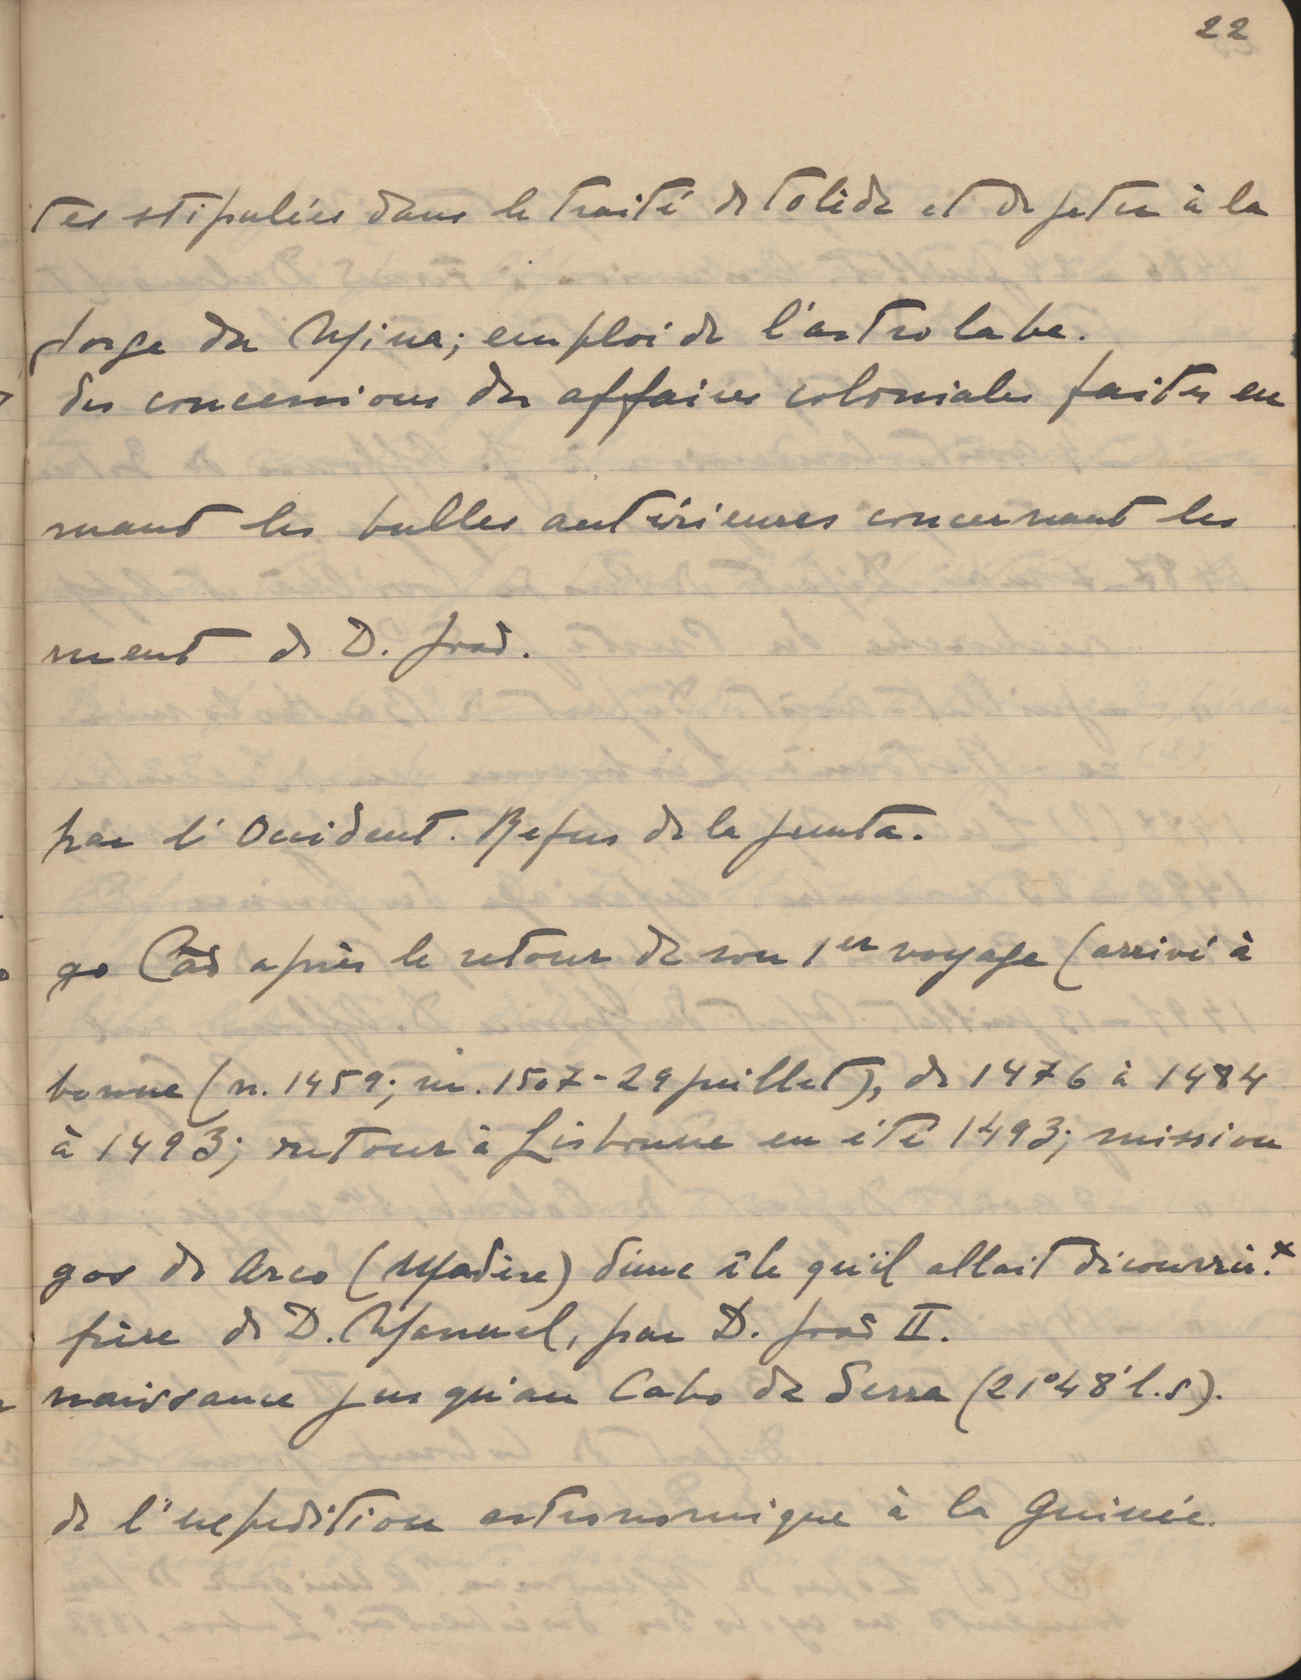 22
tes stipulées dans le traité de Tolède et de jeter à la
forge da Mina; emploi de l'astrolabe.
des concessions des affaires coloniales faites en
mant les bulles antérieures concernant les
ment de D. João.
par l'Occident. Refus de la Junta.
go Cão après le retour de son 1er voyage (arrivé à
bonne (n. 1459; m. 1507-29 juillet), de 1476 à 1484
à 1493; retour à Lisbonne en été 1493; mission
gos do Arco (Madère) d'une île qu'il allait découvrir. x
frère de D. Manuel, par D. João II.
naissance jusqu'au Cabo da Serra (21°48' l.s).
de l'expedition astronomique à la Guinée.